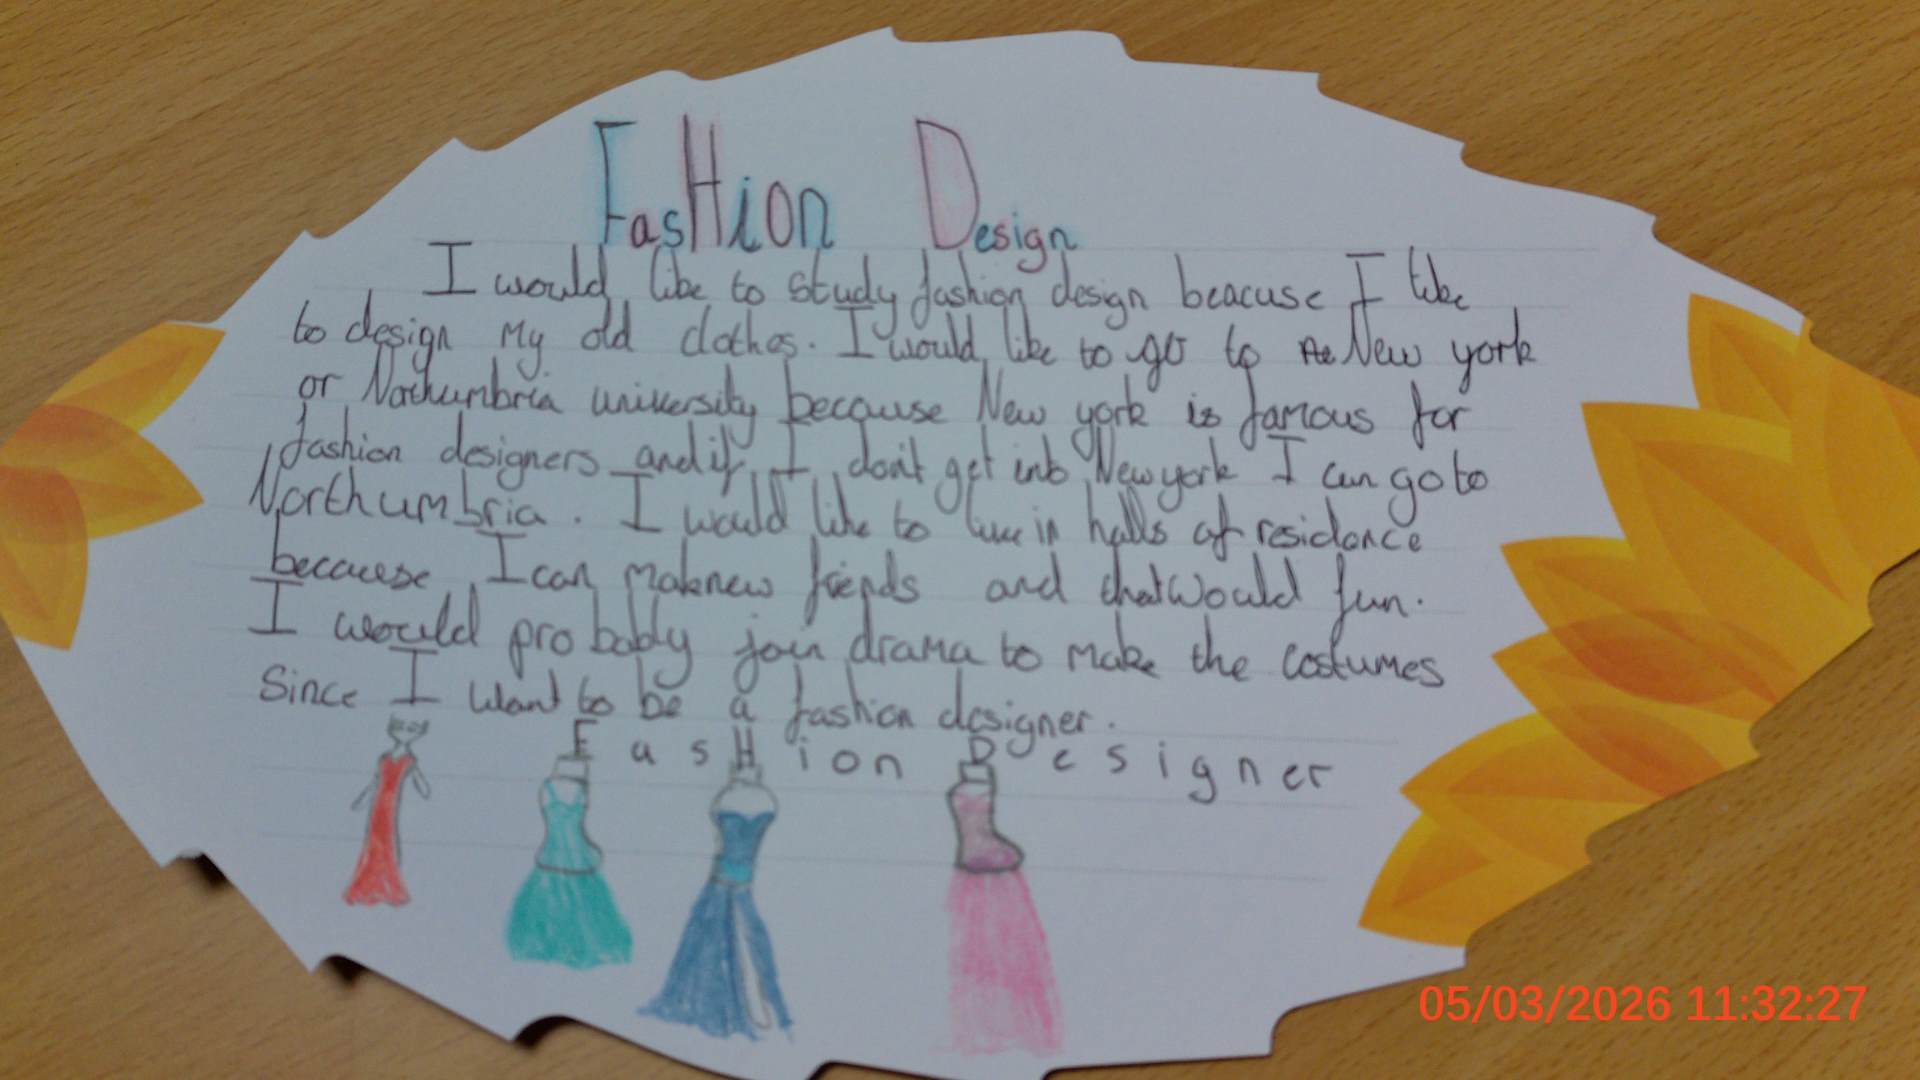 FasHion Design
I would like to study fashion design beacuse I like
to design My old clothes. I would like to go to New york
or Northumbria university because New york is famous for
fashion designers and if I don't get into New york I can go to
Northumbria. I would like to live in halls of residance
becauese I can make new friends and that Would fun.
I would probably join drama to make the costumes
Since I want to be a fashion designer.
FasHion Designer
05/03/2026 11:32:27